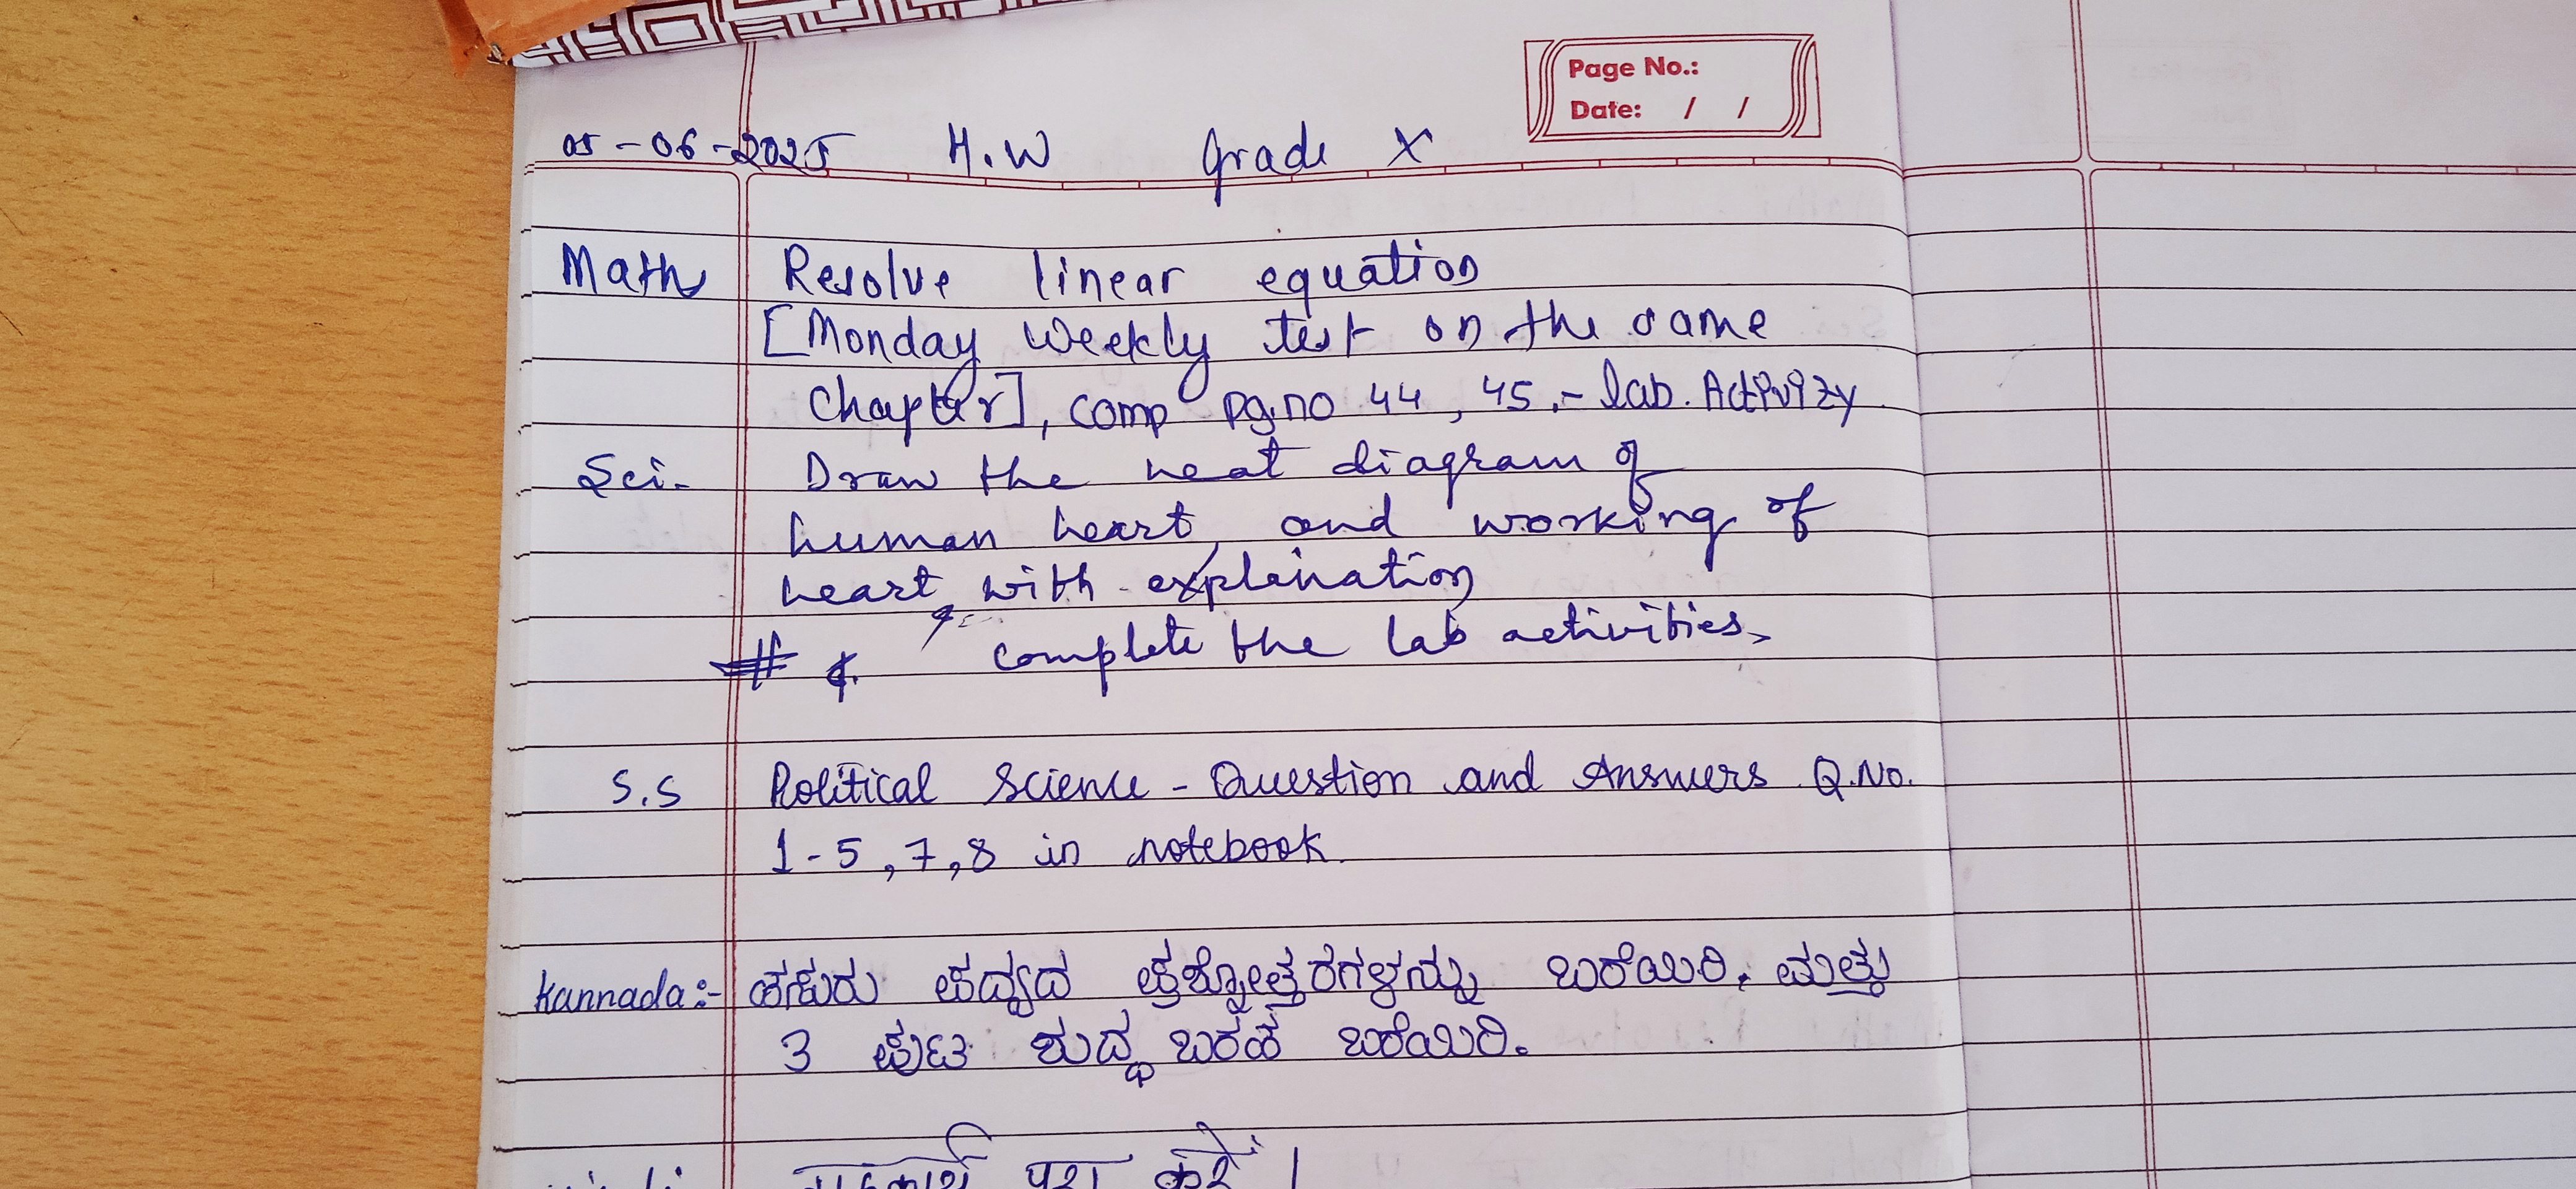 Page No.:
Date: / /
05-06-2025 H.W Grade X
Math Resolve linear equation
[Monday Weekly test on the same
Chapter], comp pg.no 44, 45.- lab. Activity
Sci- Draw the neat diagram of
human heart, and working of
heart with explanation
complete the lab activities,
S.S Political Science - Question and Answers Q.No.
1-5, 7, 8 in notebook.
Kannada:- ಹಸುರು ಪದ್ಯದ ಪ್ರಶ್ನೋತ್ತರಗಳನ್ನು ಬರೆಯಿರಿ. ಮತ್ತು
3 ಪುಟ ಶುದ್ಧ ಬರಹ ಬರೆಯಿರಿ.